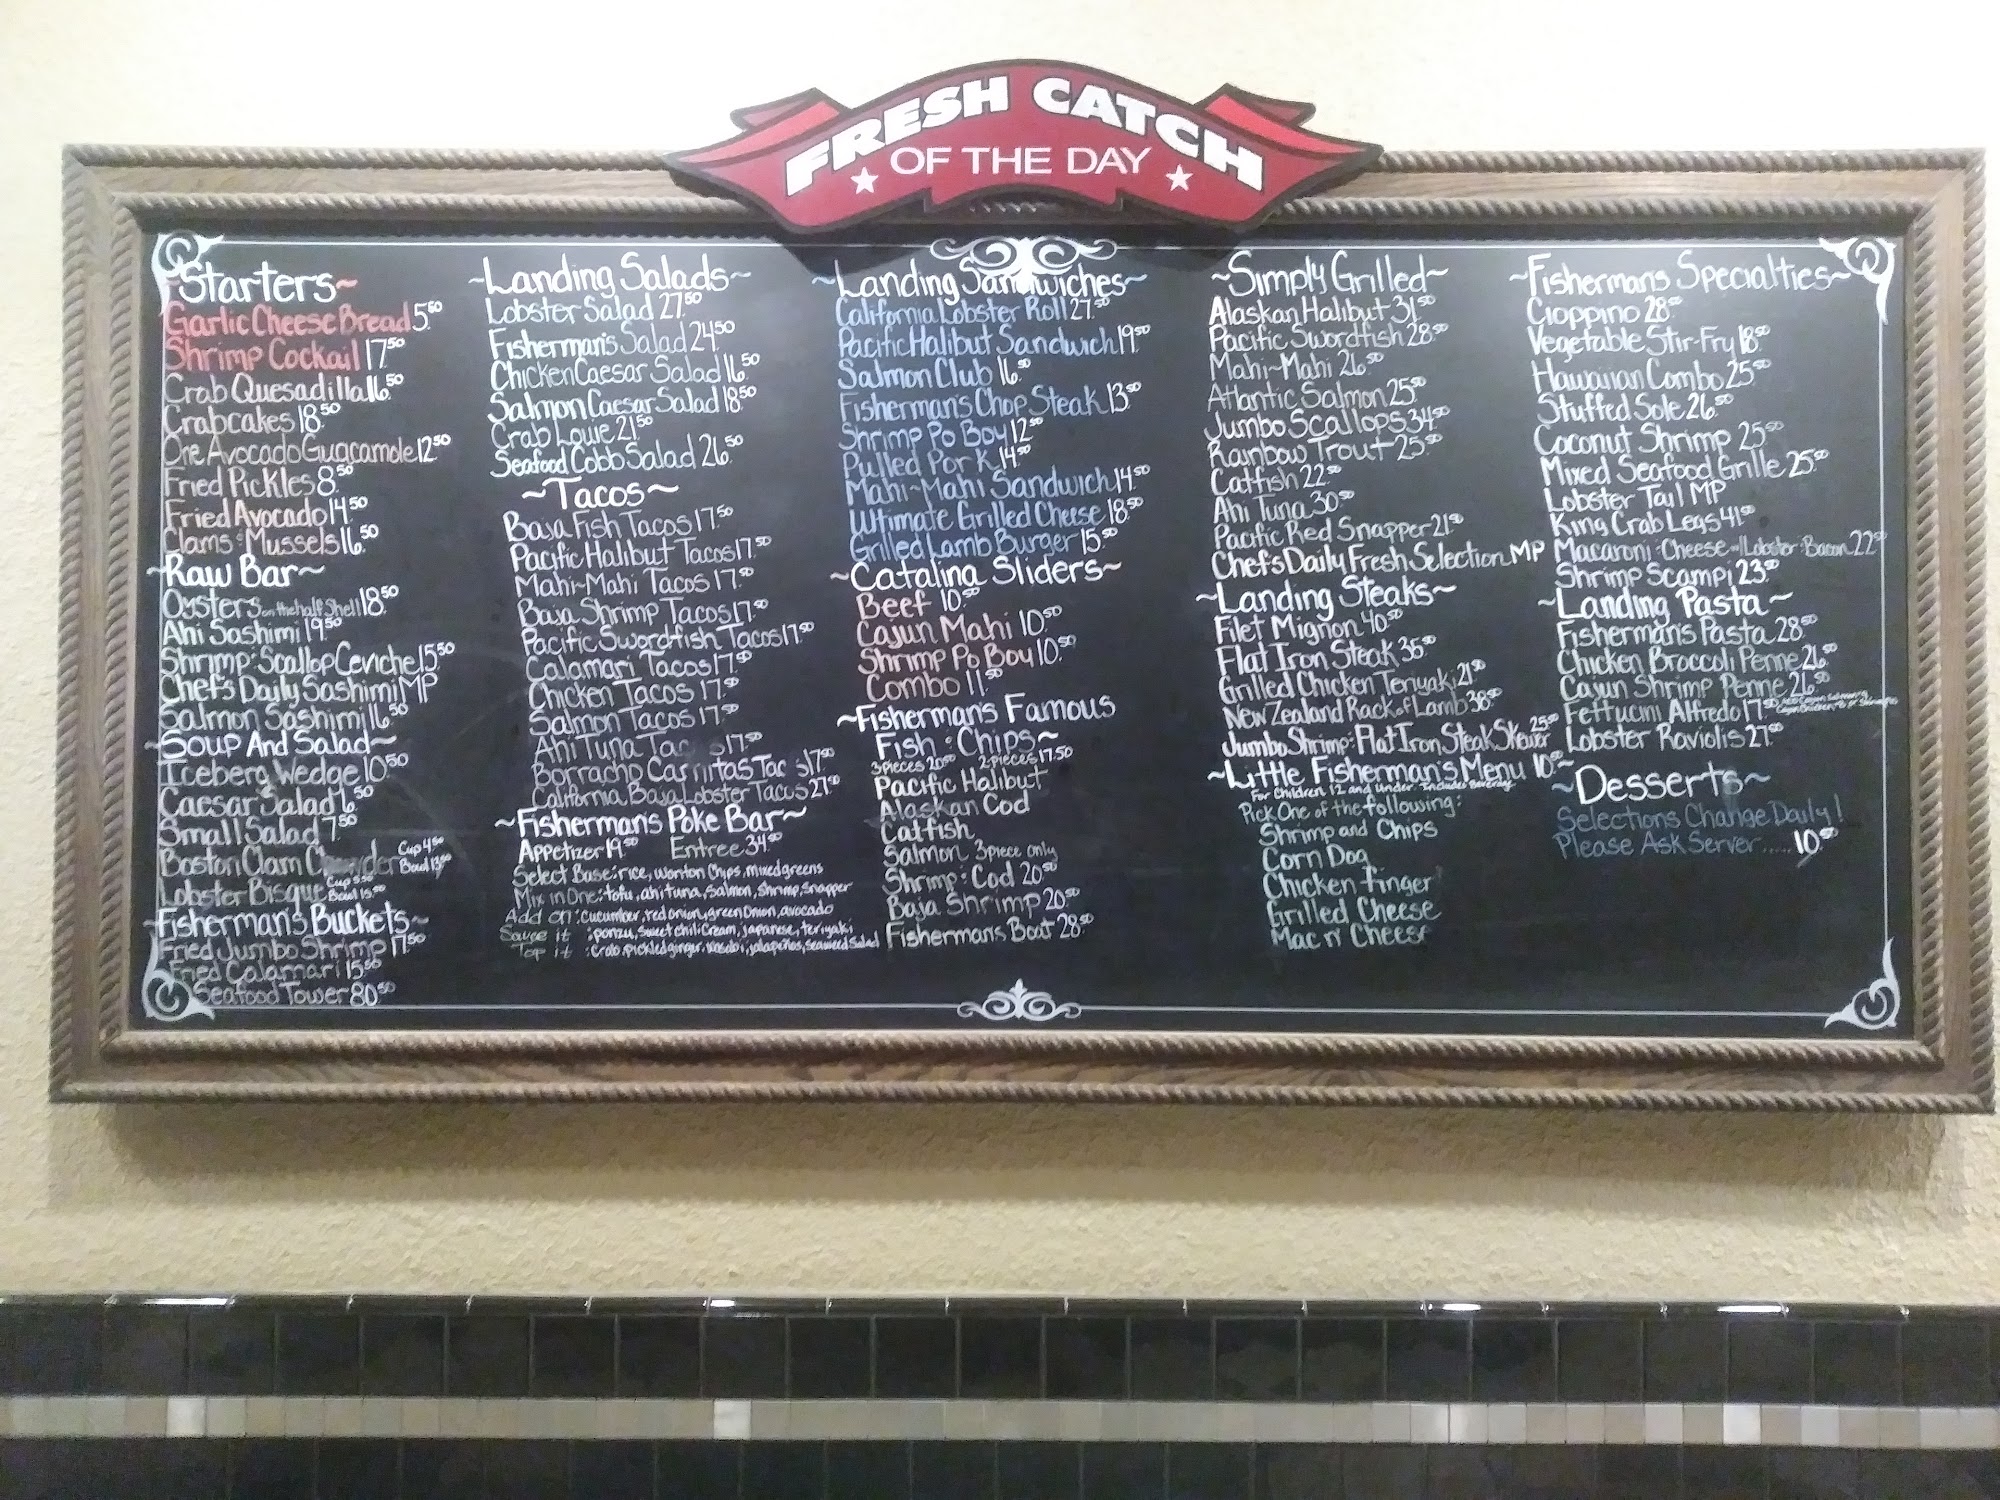 FRESH CATCH
OF THE DAY
~Starters~
Garlic Cheese Bread 5.50
Shrimp Cockail 17.50
Crab Quesadilla 16.50
Crabcakes 18.50
One Avocado Guacamole 12.50
Fried Pickles 8.50
Fried Avocado 14.50
Clams & Mussels 16.50
~Raw Bar~
Oysters on the half Shell 18.50
Ahi Sashimi 19.50
Shrimp & Scallop Ceviche 15.50
Chef's Daily Sashimi MP
Salmon Sashimi 16.50
~Soup And Salad~
Iceberg Wedge 10.50
Caesar Salad 6.50
Small Salad 7.50
Boston Clam Chowder Cup 4.50 Bowl 13.50
Lobster Bisque Cup 5.50 Bowl 15.50
~Fisherman's Buckets~
Fried Jumbo Shrimp 17.50
Fried Calamari 15.50
Seafood Tower 80.50
~Landing Salads~
Lobster Salad 27.50
Fisherman's Salad 24.50
Chicken Caesar Salad 16.50
Salmon Caesar Salad 18.50
Crab Louie 21.50
Seafood Cobb Salad 26.50
~Tacos~
Baja Fish Tacos 17.50
Pacific Halibut Tacos 17.50
Mahi-Mahi Tacos 17.50
Baja Shrimp Tacos 17.50
Pacific Swordfish Tacos 17.50
Calamari Tacos 17.50
Chicken Tacos 17.50
Salmon Tacos 17.50
Ahi Tuna Tac s 17.50
Borracho Carnitas Tac s 17.50
California Baja Lobster Tacos 27.50
~Fisherman's Poke Bar~
Appetizer 19.50 Entree 34.50
Select Base: rice, wonton Chips, mixed greens
Mix in One: tofu, ahi tuna, Salmon, Shrimp, Snapper
Add on: Cucumber, red onion, green Onion, avocado
Sauce it: ponzu, Sweet chili Cream, Japanese, teriyaki
Top it: Crab, pickled ginger, wasabi, jalapeños, seaweed Salad
~Landing Sandwiches~
California Lobster Roll 27.50
Pacific Halibut Sandwich 19.50
Salmon Club 16.50
Fisherman's Chop Steak 13.50
Shrimp Po Boy 12.50
Pulled Pork 14.50
Mahi-Mahi Sandwich 14.50
Ultimate Grilled Cheese 18.50
Grilled Lamb Burger 15.50
~Catalina Sliders~
Beef 10.50
Cajun Mahi 10.50
Shrimp Po Boy 10.50
Combo 11.50
~Fisherman's Famous
Fish & Chips~
3 pieces 20.50 2 pieces 17.50
Pacific Halibut
Alaskan Cod
Catfish
Salmon 3 piece only
Shrimp & Cod 20.50
Baja Shrimp 20.50
Fisherman's Boat 28.50
~Simply Grilled~
Alaskan Halibut 31.50
Pacific Swordfish 28.50
Mahi-Mahi 26.50
Atlantic Salmon 25.50
Jumbo Scallops 34.50
Rainbow Trout 25.50
Catfish 22.50
Ahi Tuna 30.50
Pacific Red Snapper 21.50
Chef's Daily Fresh Selection MP
~Landing Steaks~
Filet Mignon 40.50
Flat Iron Steak 36.50
Grilled Chicken Teriyaki 21.50
New Zealand Rack of Lamb 38.50
Jumbo Shrimp & Flat Iron Steak Skewer 25.50
~Little Fisherman's Menu 10.50~
For Children 12 and Under. Includes Beverage
Pick One of the following:
Shrimp and Chips
Corn Dog
Chicken Finger
Grilled Cheese
Mac n' Cheese
~Fisherman's Specialties~
Cioppino 28.50
Vegetable Stir-Fry 18.50
Hawaiian Combo 25.50
Stuffed Sole 26.50
Coconut Shrimp 25.50
Mixed Seafood Grille 25.50
Lobster Tail MP
King Crab Legs 41.50
Macaroni & Cheese w/ Lobster & Bacon 22.50
Shrimp Scampi 23.50
~Landing Pasta~
Fisherman's Pasta 28.50
Chicken Broccoli Penne 26.50
Cajun Shrimp Penne 26.50
Fettucini Alfredo 17.50
Lobster Raviolis 27.50
~Desserts~
Selections Change Daily!
Please Ask Server..... 10.50